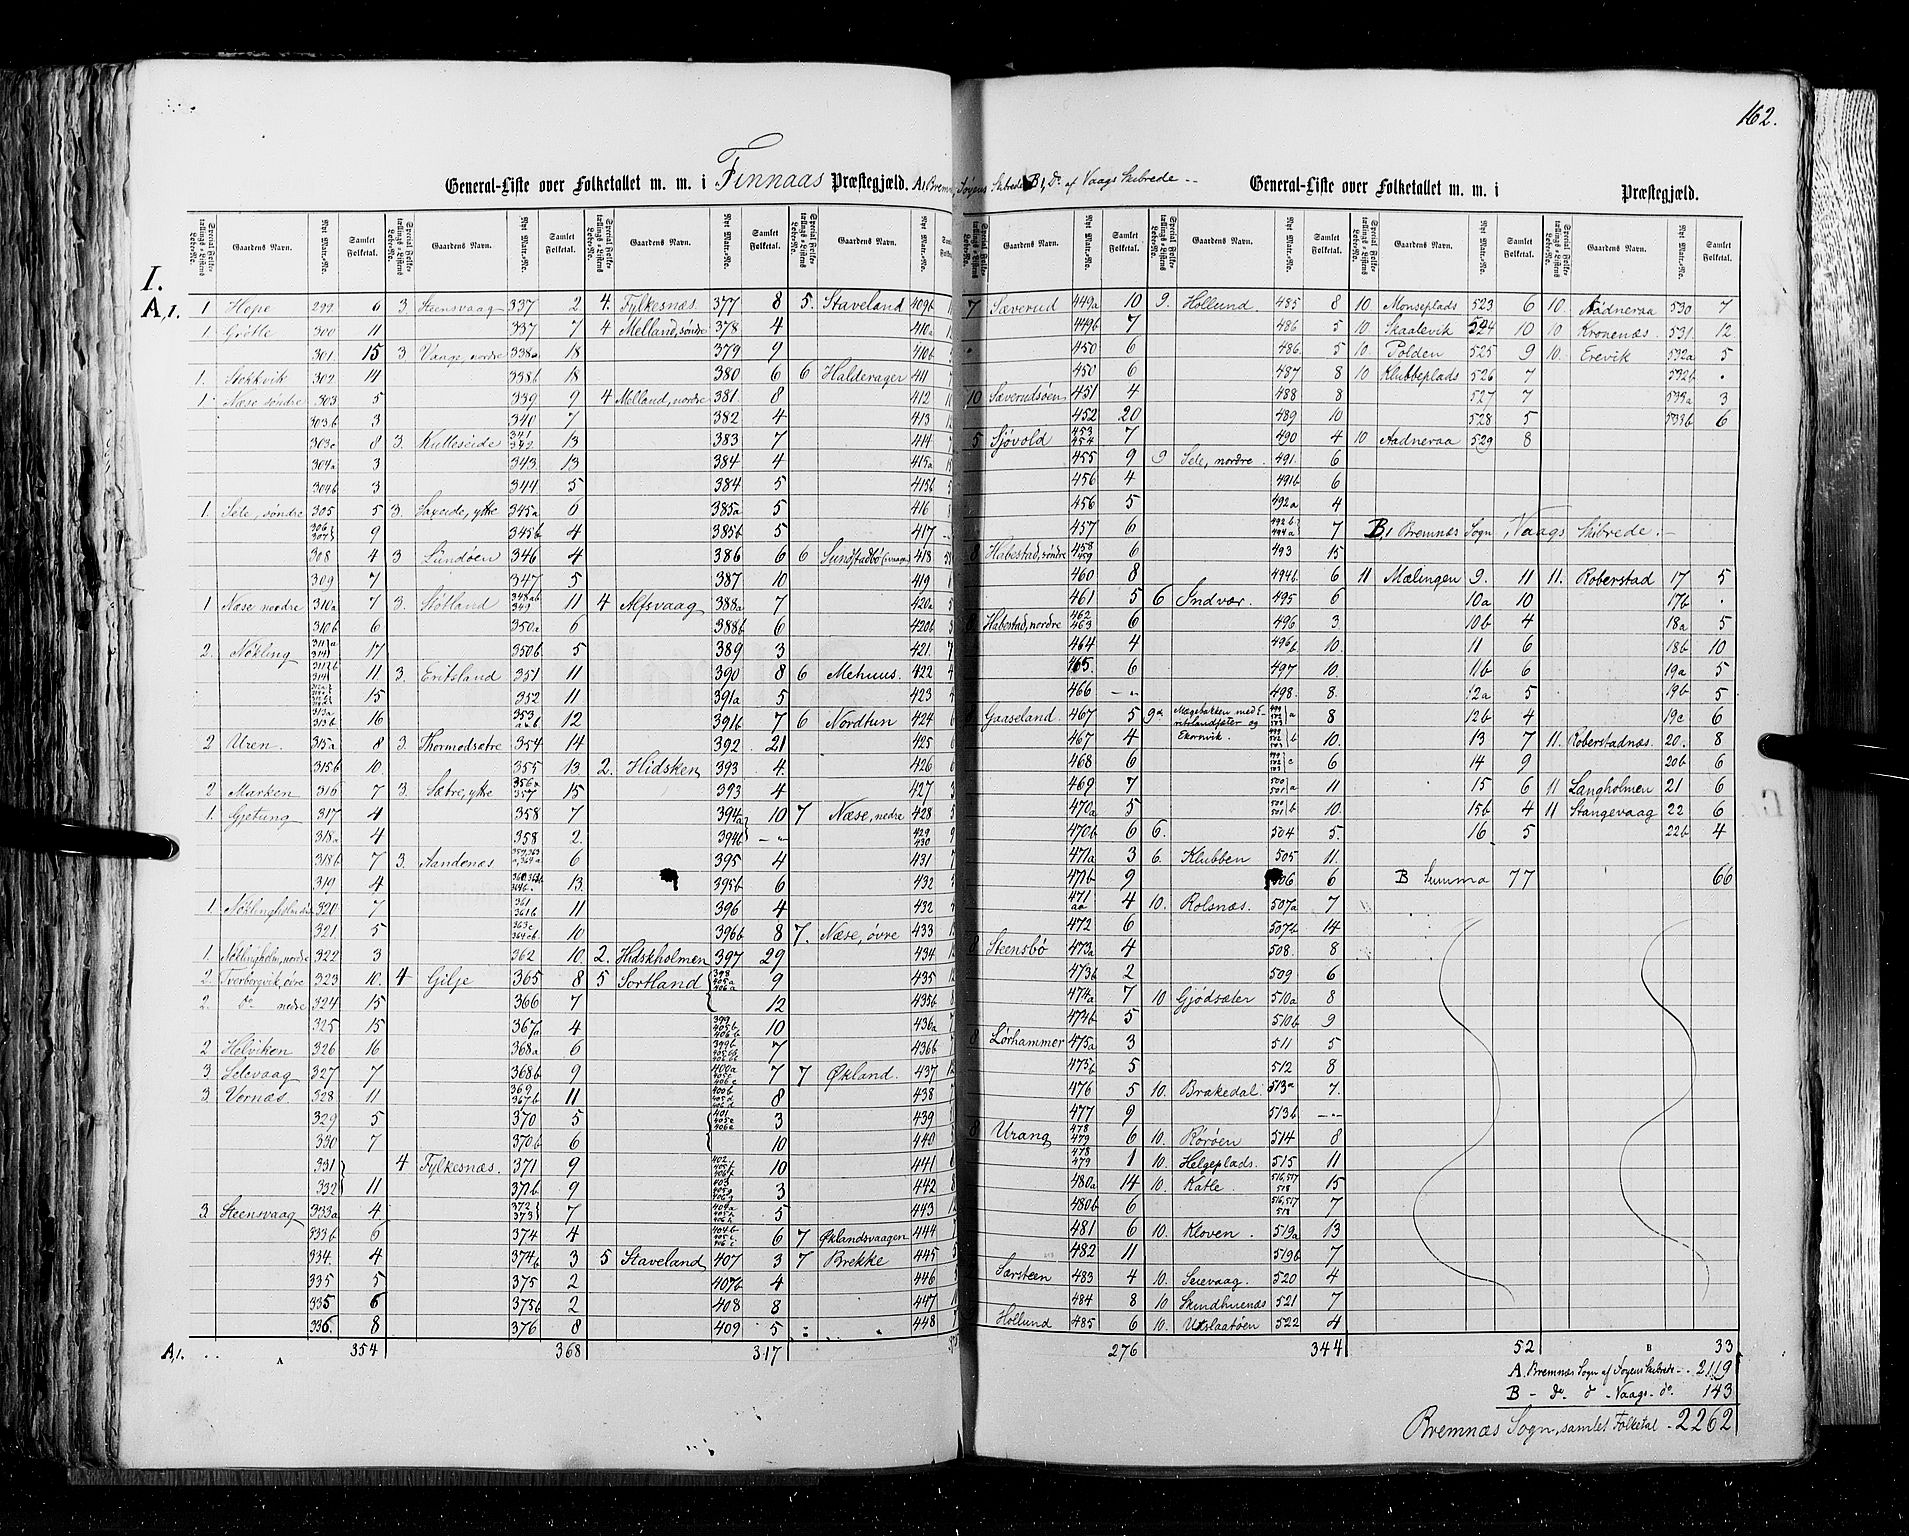 162.
General-Liste over Folketallet m. m. i Finnaas Præstegjæld. A, Bremnæs Søyens Skibrede B, Do af Vaags Skibrede
General-Liste over Folketallet m. m. i Præstegjæld.
Special Folketællings-Listens Løbe-No. Gaardens Navn. Nyt Matr.-No. Samlet Folketal.
I.
A,1.
1 Hope 299 6
1 Grötle 300 11
301 15
1. Stokkvik 302 14
1 Næse söndre 303 5
303b 3
303c 8
304a 3
304b 3
1. Sele, söndre 305 5
306 307 9
308 4
309 7
1 Næse nordre 310a 7
310b 6
2. Nökling 311a 314 17
311b 314 11
15
313a 313b 16
2 Uren. 315a 8
315b 10.
2 Marken 316 7
1. Gjetung 317 4
318a 4
318b 7
319 4
1. 320 7
321 5
1. Nöklingholm, nordre 322 3
2. Tverborgvik, övre 323 10.
2. do nedre 324 15
325 15
2 Helviken 326 16
3 Selevaag 327 7
3 Vernæs 328 11
329 5
330 7
331
332 11
3. Steensvaag 333a 4
333b 6
334. 4
335 5
335 6
336. 8
A,1. 354
3. Steensvaag 337 2
337 7
3 Vaage, nordre 338a 18
338b 18
339 9
340 7
3. Kulleseide 341 342 13
343 13
344 5
3. Saxeide, ytre 345a 6
345b 4
3 Lundöen 346 4
347 5
3. Stötland 348ab 349 11
350a 6
350b 5
3. Eritsland 351 11
352 11
353 a&b 12
3. Thormodsætre 354 14
355 13
3. Sætre, ytre 356a 357 15
358 7
358 2.
3. Aandenæs 6
13.
361 361b 11
10
362 10.
4 Gilje 365 8
366 7
367a 4
368a 6
368b 9
369 367b 11
370 5
370b 6
4 Fylkesnæs. 371 9
371b 9
372 373 7
374 4
374b 3
375 2
375b 2
376 8
368
4. Fylkesnæs 377 8
4 Melland, söndre 378 4
379 9
380 6
4 Melland, nordre 381 8
382 4
383 7
384 4
384 5
385a 5
385b 5
386 6
387 10
4 Alfsvaag 388a 7
388b 6
389 3
390 8
391a 5
391b 7
392 21
2. Hidsken 393 4.
393 4
394a 10
394b
395 4
395b 6
396 4
396b 8
2. Hidskholmen 397 29
5 Sortland 398 405a 406a 9
12
399 405b 406b 10
399b 7
400a 405c 406c 7
400b 405d 406d 8
401 405e 406e 3
10
402 405f 406f 10
403 405g 406g 3
404a 405h 406h 5
404b 405i 406i 6
5 Staveland 407 3
407b 4
408 8
409 5
317
5. Staveland 409b
410a
410b
6 Halderager 411
412
413
414
415a
415b
416
417
6 418
419
420a
420b
421
6 Mehuus. 422
423
6 Nordtun 424
425
426
427
7 Næse, nedre 428
429 430
431
432
432
7. Næse, övre 433
434
435
435b
436a
436b
7 Økland. 437
438
439
440
441
442
443
7 Øklandsvaagen 444
7 Brekke 445
446
447
448
7 Sæverud 449a 10
449b 7
450 6
450 6
10 Sæverudsöen 451 4
452 20
5 Sjövold 453 454 7
455 9
456 4
456 5
457 6
8 Habestad, söndre 458 459 6
460 8
461 5
Habestad, nordre 462 463 6
464 4
465. 6
466 - " -
Gaaseland. 467 5
467 4
468 6
469 7
470a 5
470b 6
471a 3
471b 9
471 aa 4
472 6
8 Steensbö 473a 4
473b 2
474a 7
474b 5
8 Lörhammer 475a 3
475b 5
476 5
477 9
8 Urang 478 479 6
478 479 1
480a 14
480b 6
481 6
482 11
Særsteen 483 4
484 8
Hollund 485 6
276
9. Hollund. 485 8
486 5
486. 5
487 8
488 8
489 10
490 4
9 Sele, nordre. 491. 6
491b 6
492a 4
492b 494a 7
493 15
494b 6
6 Indvær. 495 6
496 3
496b 10.
497 10.
498. 8.
9a Mægebakken med Eritslandsæter og Ekornvik. a 8
b 10.
c 6
500 501 a 11
500 501 b 10.
6. 504 5.
6. Klubben 505 11.
506 6
10. Rolsnæs. 507a 7
507b 14
508. 8
509 6
10 Gjödsæter 510a 8
510b 9
511 5
512 8
10. Brækedal. 513a 7.
513b - " -
10. Röröen 514 8
10. Helgeplads. 515 11
10. Katle. 516, 517 518 15
516, 517 518 7
10. Kloven. 519a 13
519b 7
10. Seievaag. 520 4
10 Skindhuenæs 521 7
10. Utslaatöen 522 4
344
10 Monseplads 523 6
10 Skaalevik 524 10
10. Polden 525 9
10 Klubbeplads 526 7
527 7
528 5
10 Aadneraa 529 8
10. Aadneraa 530 7
10 Kronenæs. 531. 12
10. Erevik 532a 5
532b .
533a 3
533b 6
B, Bremnæs Sogn, Vaags Skibrede.
11 Mælingen 9. 11
10a 10
10b 4
11 6
11b 6
12a 5
12b 4
13 7
14 9
15 6
15b 4
16 5
B Summa 77
11. Roberstad 17 5
17b .
18a 5
18b 10
19a 5
19b 5
19c 6
11. Roberstadnæs. 20. 8
20b 6
11 Langholmen 21 6
11 Stangevaag 22 6
22b 4
66
52
B 33
A. Bremnæs Sogn af Söyens Skibrede - 2119
B - do - d - Vaags - do. 143
Bremnæs Sogn, samlet Folketal - 2262